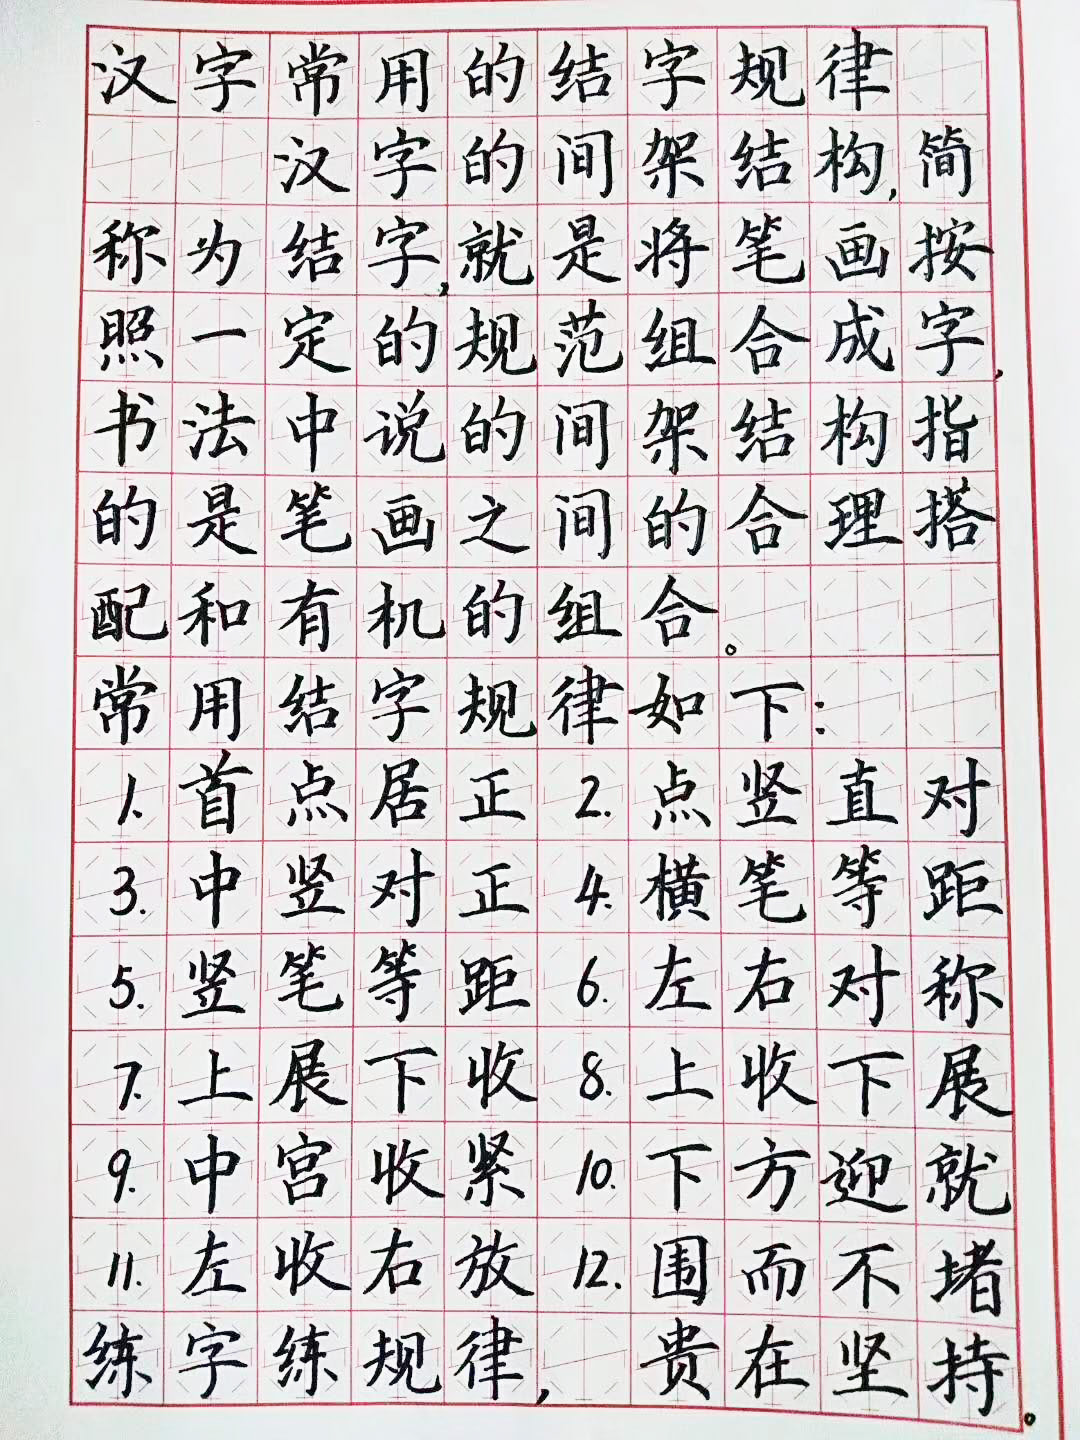 汉字常用的结字规律
汉字的间架结构,简
称为结字,就是将笔画按
照一定的规范组合成字,
书法中说的间架结构指
的是笔画之间的合理搭
配和有机的组合。
常用结字规律如下:
1.首点居正2.点竖直对
3.中竖对正4.横笔等距
5.竖笔等距6.左右对称
7.上展下收8.上收下展
9.中宫收紧10.下方迎就
11.左收右放12.围而不堵
练字练规律,贵在坚持。